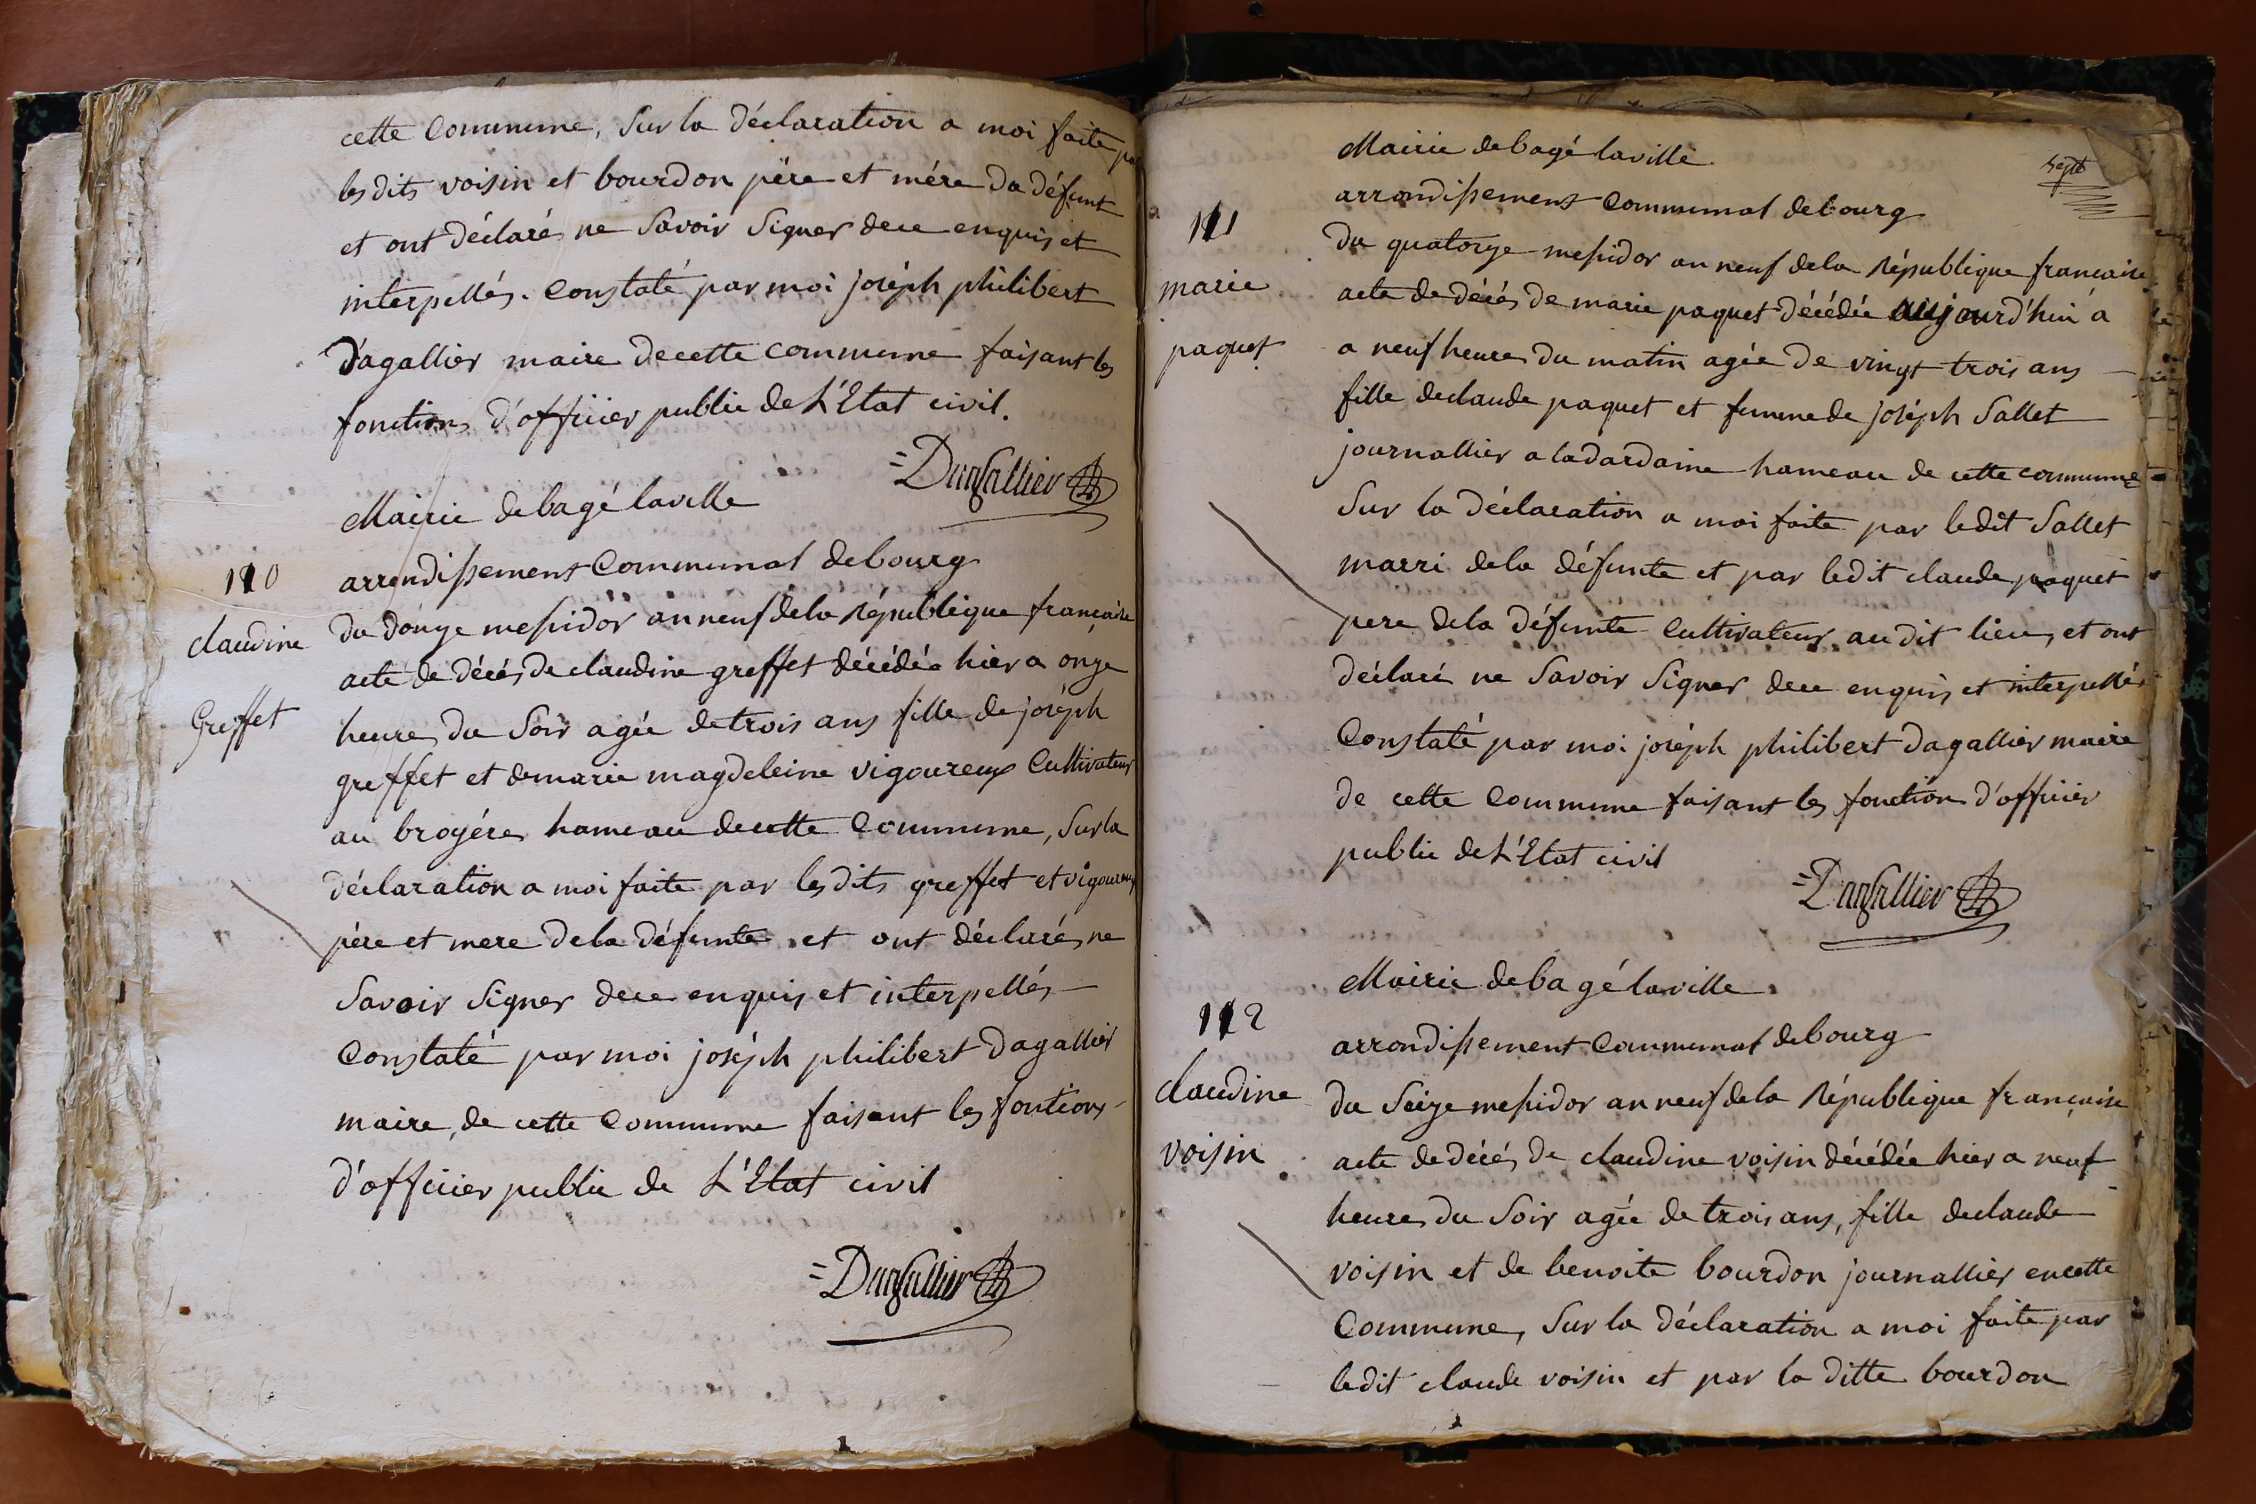 cette Commune, Sur la déclaration a moi faite par
les dits voisin et bourdon père et mére du défunt
et ont déclarés ne Savoir Signer dece enquis et
interpellés. Constaté par moi joséph philibert
Dagallier maire decette commune faisant les
fonctions d'officier public de L'Etat civil.
=Dagallier
Mairie debagé laville
arrondissement Communal debourg
110
claudine
Greffet
du douze messidor an neuf dela République française
acte de décés de claudine greffet décédée hier a onze
heures du Soir agée de trois ans fille de joséph
greffet et demarie magdeleine vigoureux Cultivateurs
au broyéres hameau decette Commune, Sur la
déclaration a moi faite par les dits greffet et vigoureux
père et mere dela défunte et ont déclarés ne
Savoir Signer dece enquis et interpellés
Constaté par moi joséph philibert Dagallier
maire de cette Commune faisant les fontions
d'officier public de L'Etat civil
=Dagallier
Mairie debagé laville
arrondissement Communal debourg
111
marie
paquet
du quatorze messidor an neuf dela République francaise
acte de décés de marie paquet décédée aujourd'hui a
a neuf heures du matin agée de vingt trois ans
fille declaude paquet et femme de joséph Sallet
journallier a ladardaine hameau de cette commune
Sur la déclaration a moi faite par ledit Sallet
marri dela défunte et par ledit claude paquet
pere dela défunte Cultivateur au dit lieu, et ont
déclaré ne Savoir Signer dece enquis et interpellés
Constaté par moi joséph philibert Dagallier maire
de cette Commune faisant les fonction d'officier
public de L'Etat civil
=Dagallier
Mairie debagé laville
arrondissement Communal debourg
112
claudine
voisin
du Seize messidor an neuf dela République française
acte de décés de claudine voisin décédée hier a neuf
heures du Soir agée de trois ans, fille declaude
voisin et de benoite bourdon journallier encette
Commune, Sur la déclaration a moi faite par
ledit claude voisin et par la ditte bourdon